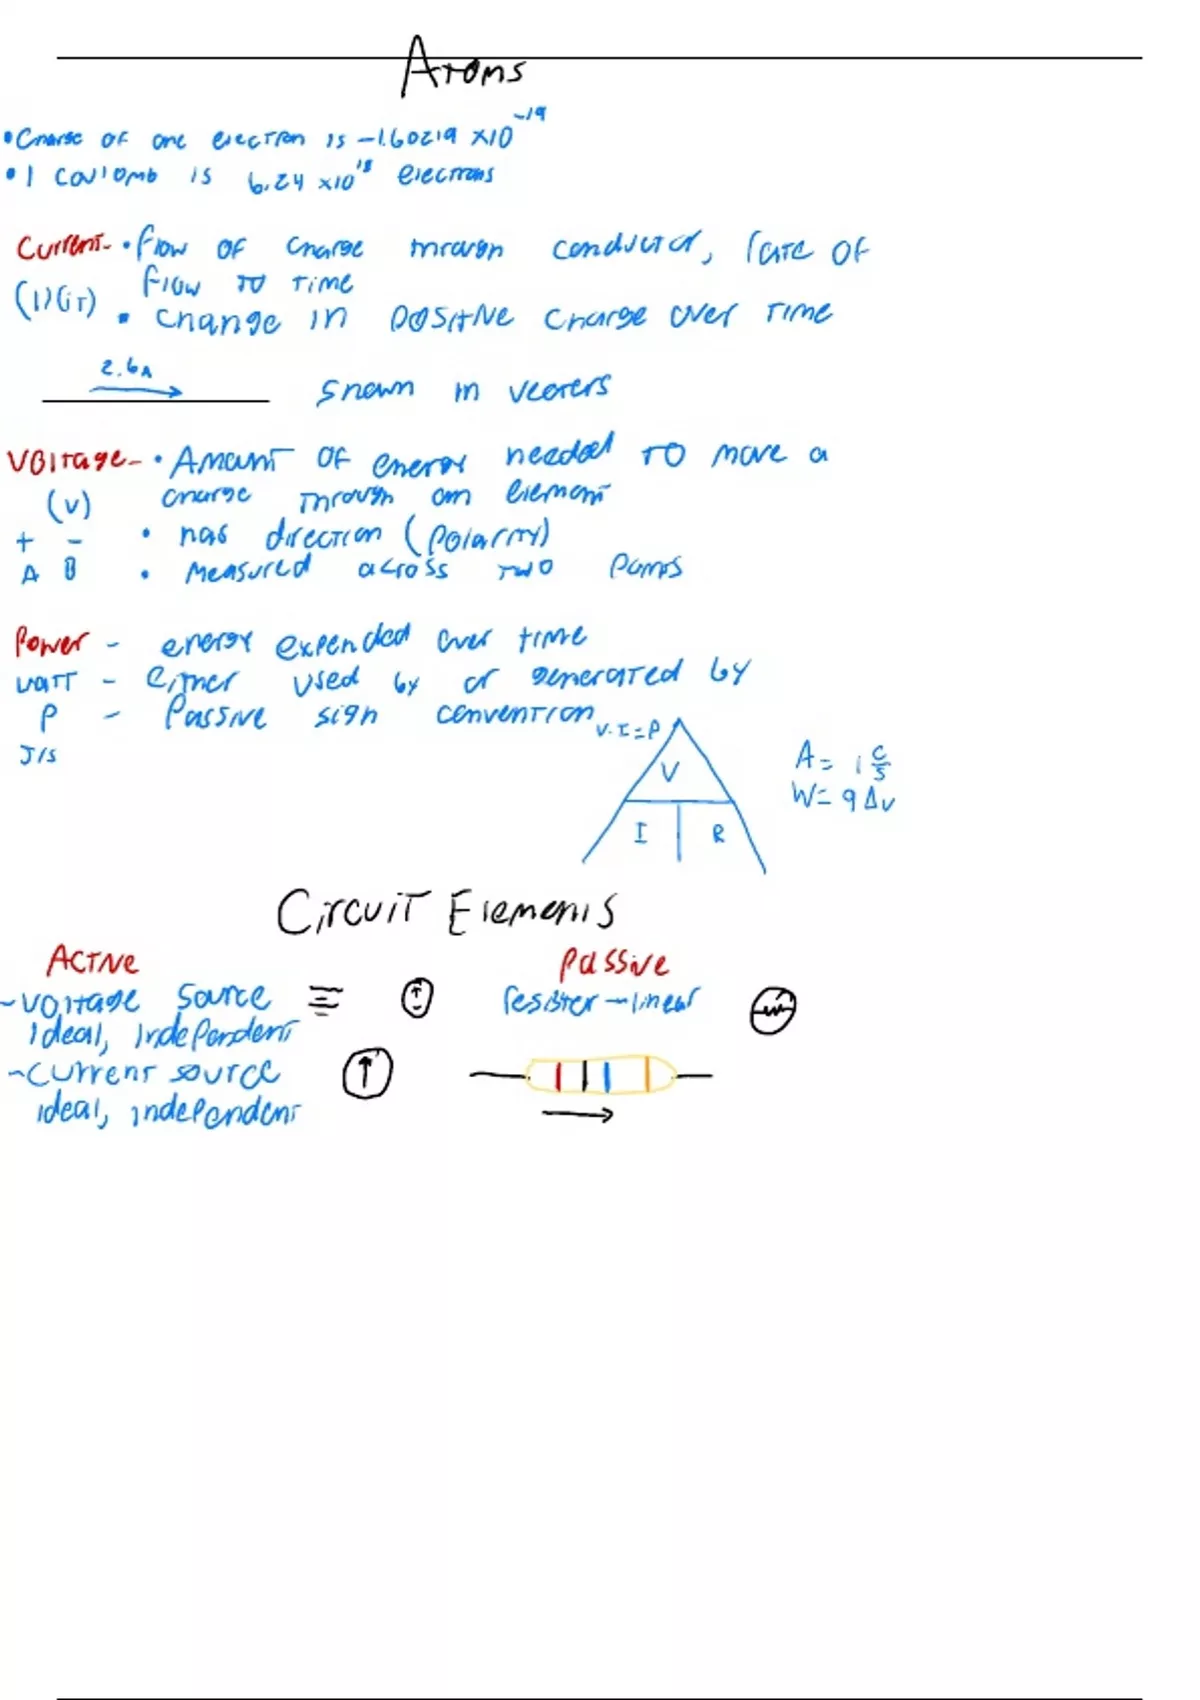 Atoms
• Charge of one electron is -1.60219 x10^-19
• 1 coulomb is 6.24 x10^18 electrons
Current - • flow of charge through conductor, rate of
flow to time
(I)(it) • change in positive charge over time
2.6A
shown in vectors
Voltage - • Amount of energy needed to move a
(V) charge through an element
+ - • has direction (polarity)
A B • measured across two points
Power - energy expended over time
watt - either used by or generated by
P - Passive sign convention
V·I=P
J/s
V
I R
A = 1 C/s
W = q Δv
Circuit Elements
Active
Passive
~ voltage source
ideal, independent
resister - linear
~ current source
ideal, independent